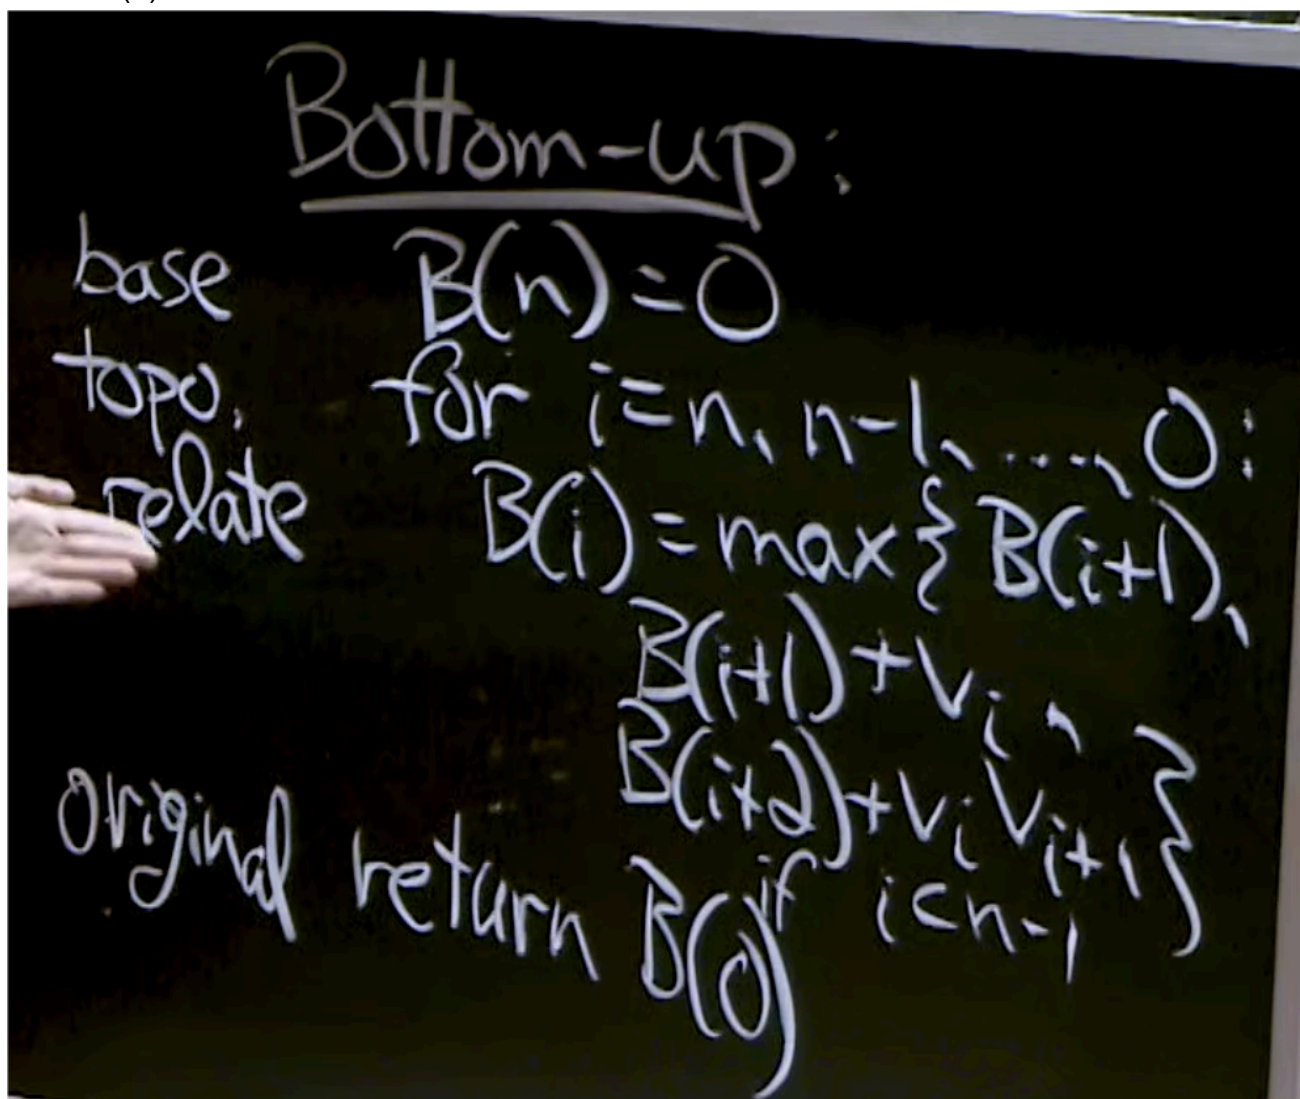 Bottom-up:
base B(n)=0
topo. for i=n, n-1, ..., 0:
relate B(i)=max{B(i+1),
B(i+1)+vᵢ,
B(i+2)+vᵢvᵢ₊₁}
if i<n-1
original return B(0)